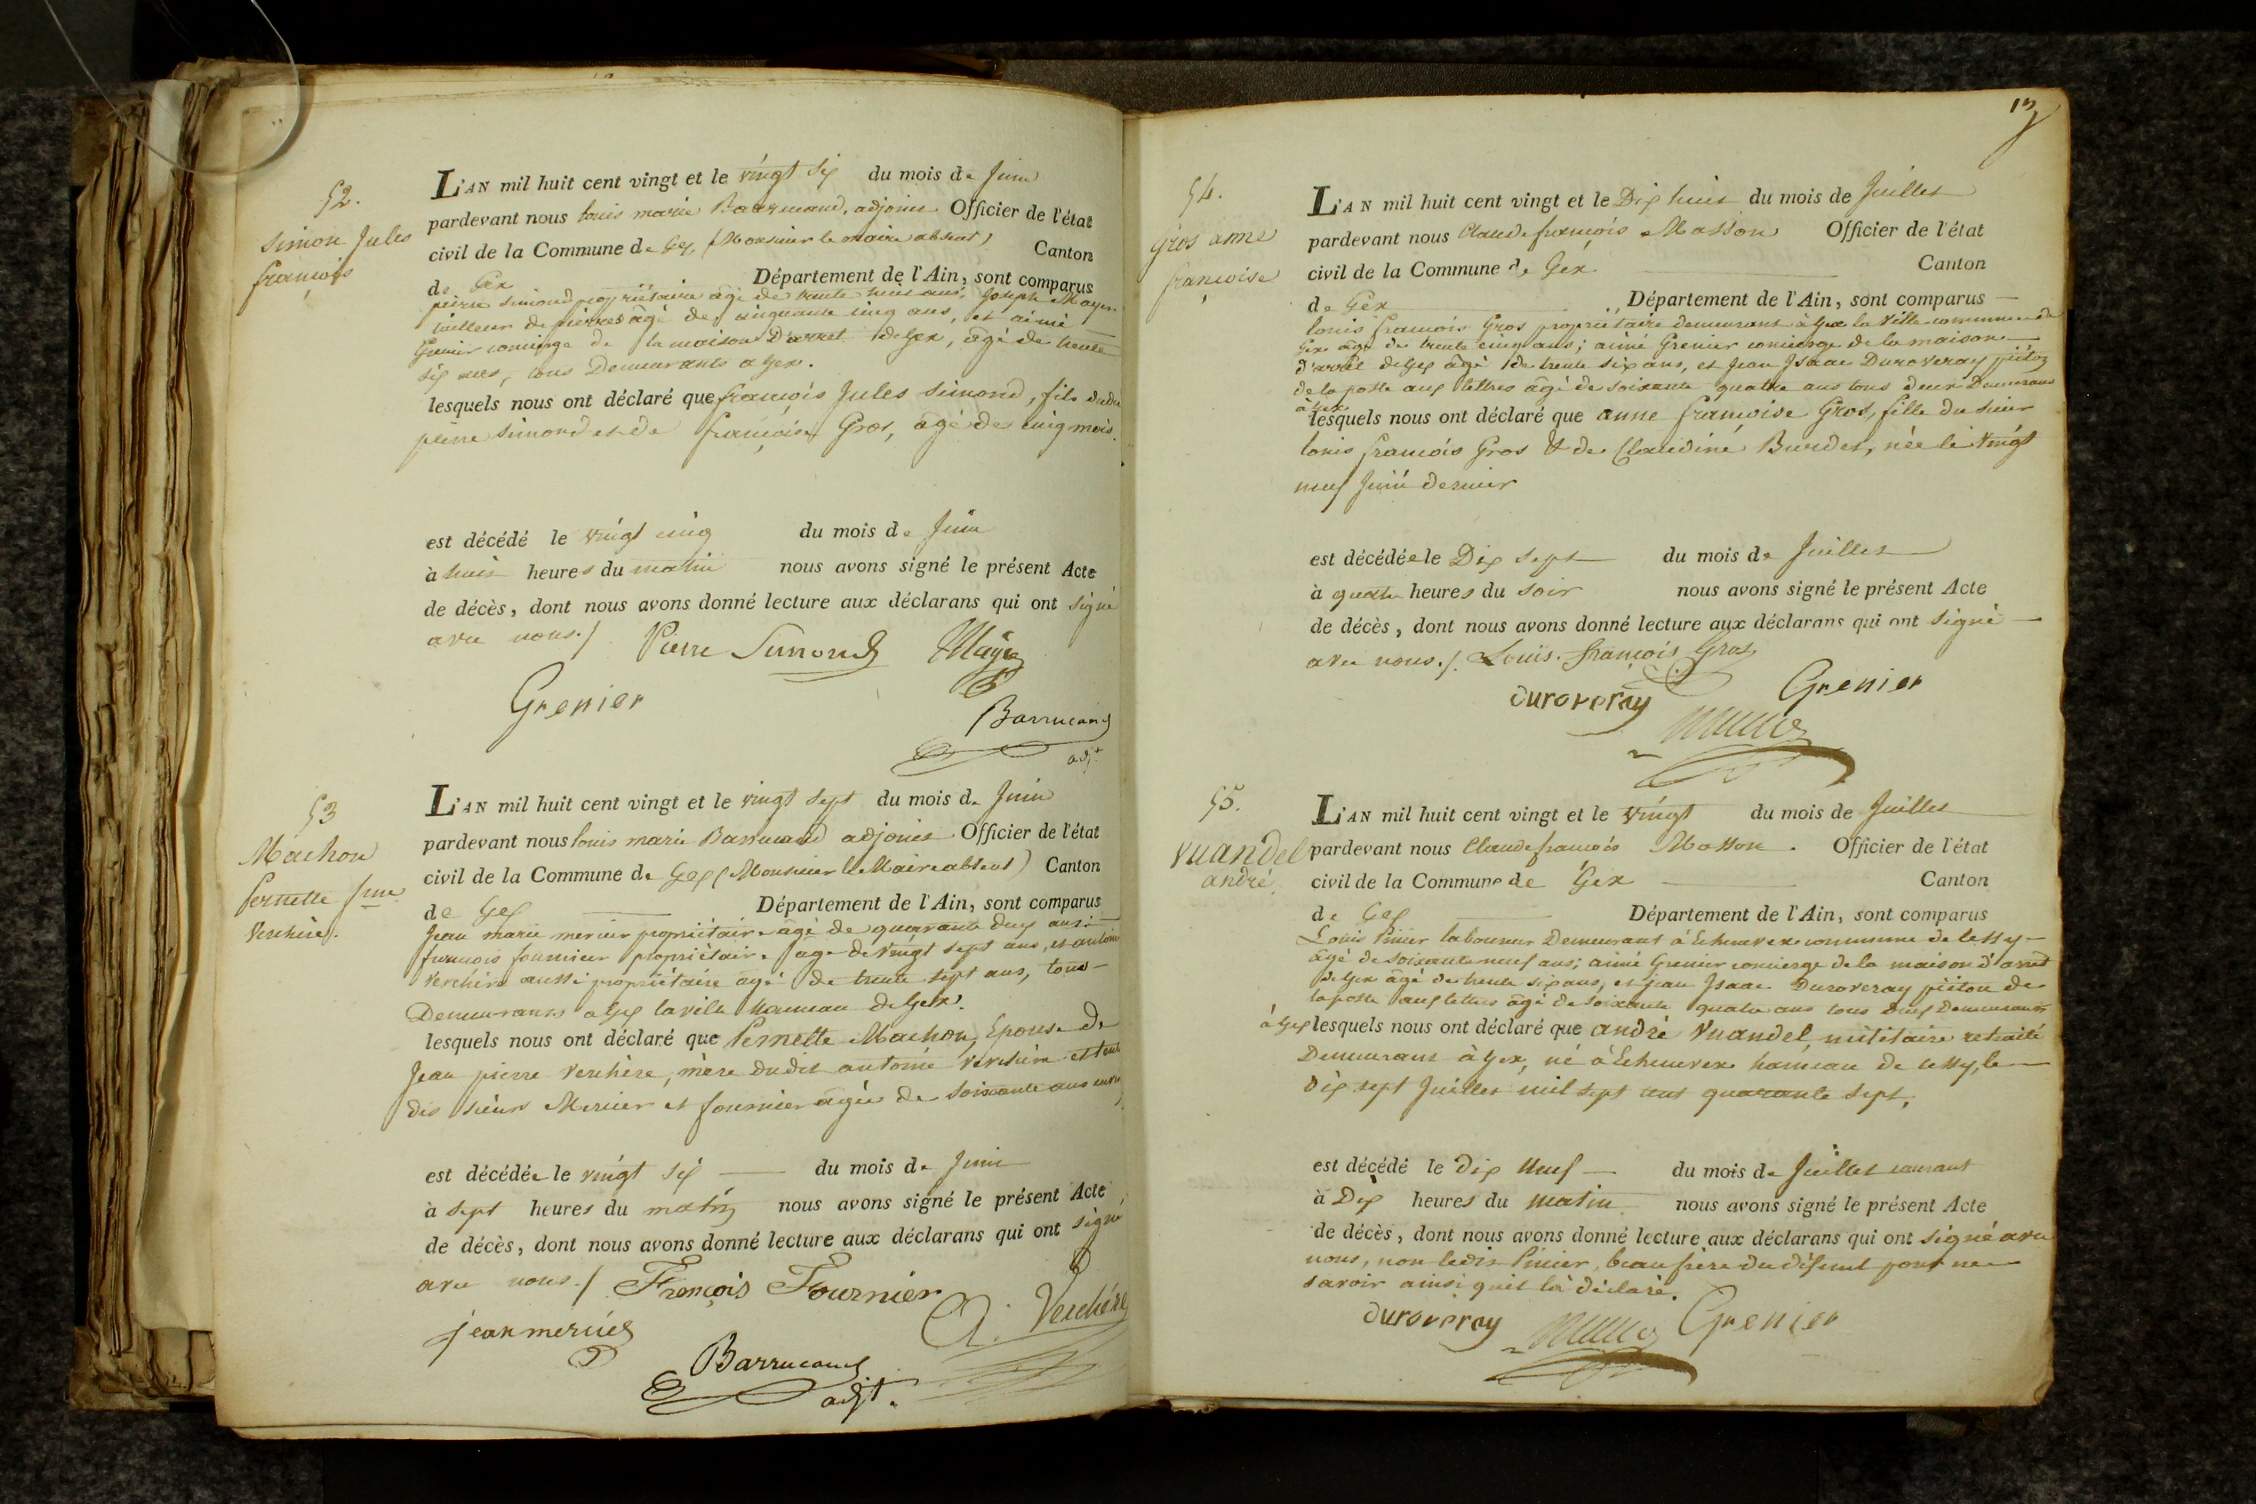 52.
Simon Jules
françois
L'AN mil huit cent vingt et le vingt six du mois de Juin
pardevant nous louis marie Barrucand, adjoint Officier de l'état
civil de la Commune de Gex, (Monsieur le maire absent) Canton
de Gex Département de l'Ain, sont comparus
pierre simond propriétaire âgé de trente huit ans, Joseph Mayer
tailleur de pierres âgé de cinquante cinq ans, et aimé
Grenier concierge de la maison D'arret de Gex, âgé de trente
six ans, tous Demeurants a Gex.
lesquels nous ont déclaré que françois Jules simond, fils dudit
pierre simond et de françoise Gros, âgé de cinq mois.
est décédé le vingt cinq du mois de Juin
à huit heures du matin nous avons signé le présent Acte
de décès, dont nous avons donné lecture aux déclarans qui ont signé
avec nous./ Pierre Simond Mayer
Grenier
Barrucand
adjt
53
Machon
Pernette fme
Verchère.
L'AN mil huit cent vingt et le vingt sept du mois de Juin
pardevant nous louis marie Barrucand adjoint Officier de l'état
civil de la Commune de Gex (Monsieur le Maire absent) Canton
de Gex Département de l'Ain, sont comparus
Jean marie mercier propriétaire âgé de quarante deux ans;
françois fournier propriétaire âgé de vingt sept ans, et antoine
verchère aussi propriétaire âgé de trente sept ans, tous
Demeurants a Gex la ville hameau de Gex.
lesquels nous ont déclaré que Pernette Machon, Epouse de
Jean pierre verchère, mère dudit antoine verchère et tante
des sieurs Mercier et fournier âgée de soixante ans
est décédée le vingt six du mois de Juin
à sept heures du matin nous avons signé le présent Acte
de décès, dont nous avons donné lecture aux déclarans qui ont signé
avec nous./ François Fournier
A. Verchère
jean mercier
Barrucand
adjt.
13
54.
Gros anne
françoise
L'AN mil huit cent vingt et le Dix huit du mois de Juillet
pardevant nous Claude françois Masson Officier de l'état
civil de la Commune de Gex Canton
de Gex Département de l'Ain, sont comparus
louis françois Gros propriétaire demeurant à Gex la Ville commune de
Gex âgé de trente cinq ans; aimé Grenier concierge de la maison
d'arrêt de Gex âgé de trente six ans, et Jean Isaac Duroveray piéton
de la poste aux lettres âgé de soixante quatre ans tous deux Demeurans
à Gex
lesquels nous ont déclaré que anne françoise Gros, fille du sieur
louis françois Gros & de Claudine Burdet, née le vingt
neuf Juin dernier
est décédée le Dix sept du mois de Juillet
à quatre heures du soir nous avons signé le présent Acte
de décès, dont nous avons donné lecture aux déclarans qui ont signé
avec nous./. Louis françois Gros
Duroveray Grenier
55.
vuandel
andré.
L'AN mil huit cent vingt et le vingt du mois de Juillet
pardevant nous Claude françois Masson. Officier de l'état
civil de la Commune de Gex Canton
de Gex Département de l'Ain, sont comparus
Louis Pinier laboureur Demeurant à Echenevex commune de Cessy
âgé de soixante neuf ans; aimé Grenier concierge de la maison d'arrêt
de Gex âgé de trente six ans, et jean Isaac Duroveray piéton de
la poste aux lettres âgé de soixante quatre ans tous deux Demeurants
à Gex lesquels nous ont déclaré que andré vuandel, militaire retraité
Demeurant à Gex, né à Echenevex hameau de Cessy, le
Dix sept Juillet mil sept cent quarante sept,
est décédé le dix neuf du mois de Juillet courant
à Dix heures du matin nous avons signé le présent Acte
de décès, dont nous avons donné lecture aux déclarans qui ont signé avec
nous, non ledit Pinier, beaufrère du défunt pour ne
savoir ainsi qu'il l'a déclaré.
Duroveray Grenier